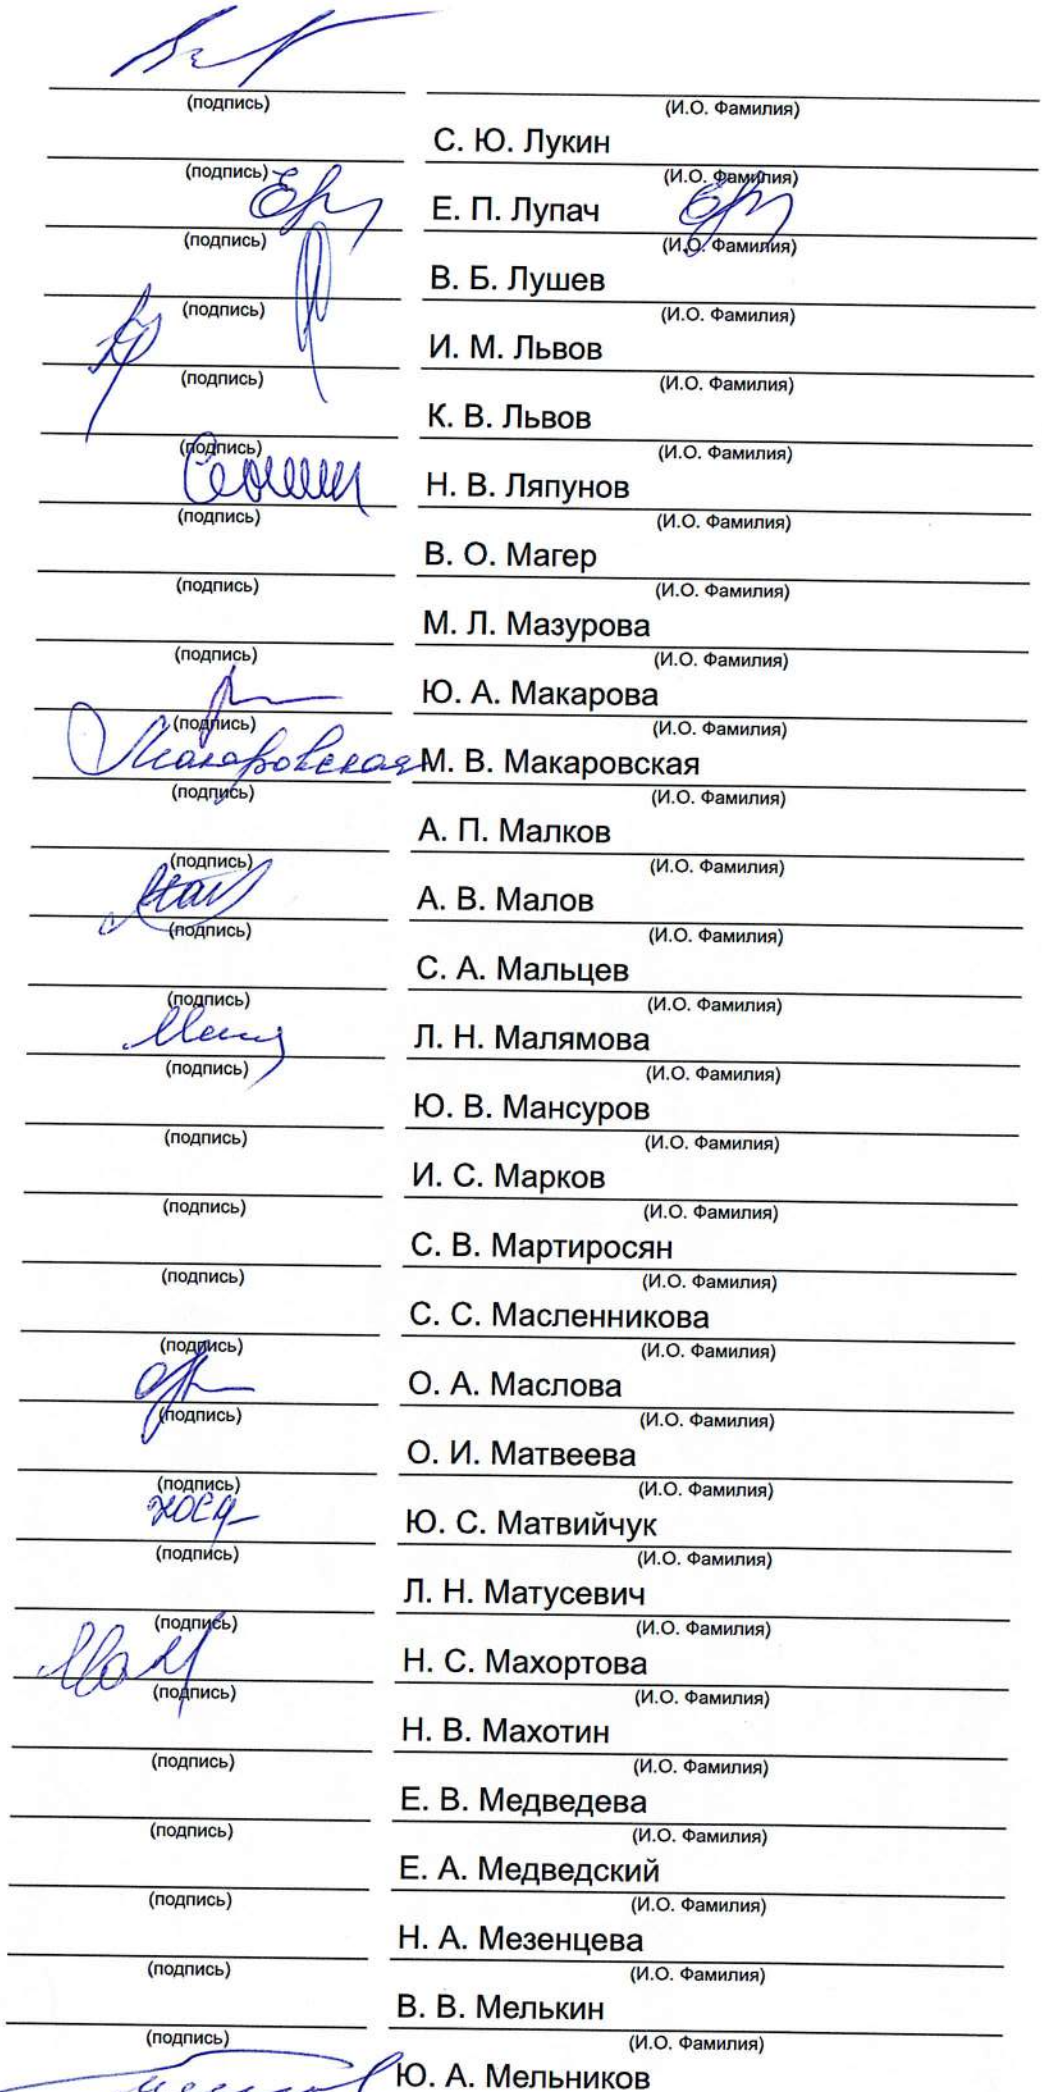 (подпись) (И.О. Фамилия)
С. Ю. Лукин
(подпись) (И.О. Фамилия)
Е. П. Лупач
(подпись) (И.О. Фамилия)
В. Б. Лушев
(подпись) (И.О. Фамилия)
И. М. Львов
(подпись) (И.О. Фамилия)
К. В. Львов
(подпись) (И.О. Фамилия)
Н. В. Ляпунов
(подпись) (И.О. Фамилия)
В. О. Магер
(подпись) (И.О. Фамилия)
М. Л. Мазурова
(подпись) (И.О. Фамилия)
Ю. А. Макарова
(подпись) (И.О. Фамилия)
Макаровская М. В. Макаровская
(подпись) (И.О. Фамилия)
А. П. Малков
(подпись) (И.О. Фамилия)
А. В. Малов
(подпись) (И.О. Фамилия)
С. А. Мальцев
(подпись) (И.О. Фамилия)
Л. Н. Малямова
(подпись) (И.О. Фамилия)
Ю. В. Мансуров
(подпись) (И.О. Фамилия)
И. С. Марков
(подпись) (И.О. Фамилия)
С. В. Мартиросян
(подпись) (И.О. Фамилия)
С. С. Масленникова
(подпись) (И.О. Фамилия)
О. А. Маслова
(подпись) (И.О. Фамилия)
О. И. Матвеева
(подпись) (И.О. Фамилия)
Ю. С. Матвийчук
(подпись) (И.О. Фамилия)
Л. Н. Матусевич
(подпись) (И.О. Фамилия)
Н. С. Махортова
(подпись) (И.О. Фамилия)
Н. В. Махотин
(подпись) (И.О. Фамилия)
Е. В. Медведева
(подпись) (И.О. Фамилия)
Е. А. Медведский
(подпись) (И.О. Фамилия)
Н. А. Мезенцева
(подпись) (И.О. Фамилия)
В. В. Мелькин
(подпись) (И.О. Фамилия)
Ю. А. Мельников